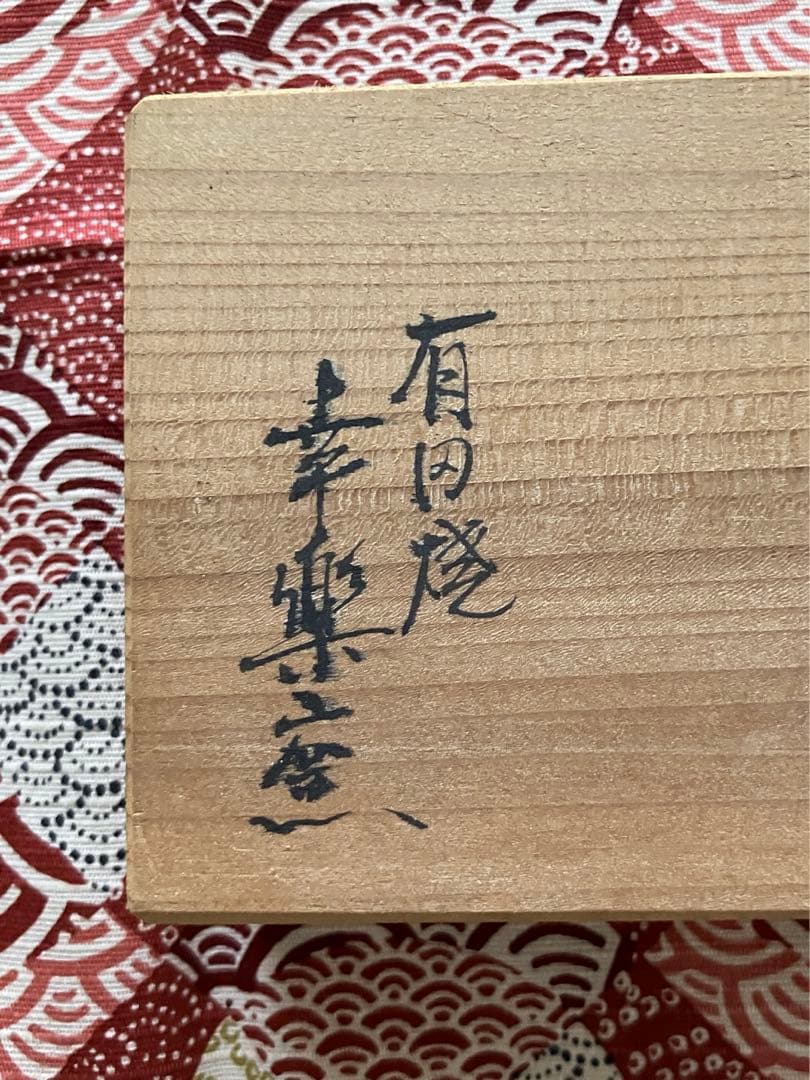 有田焼
幸楽窯